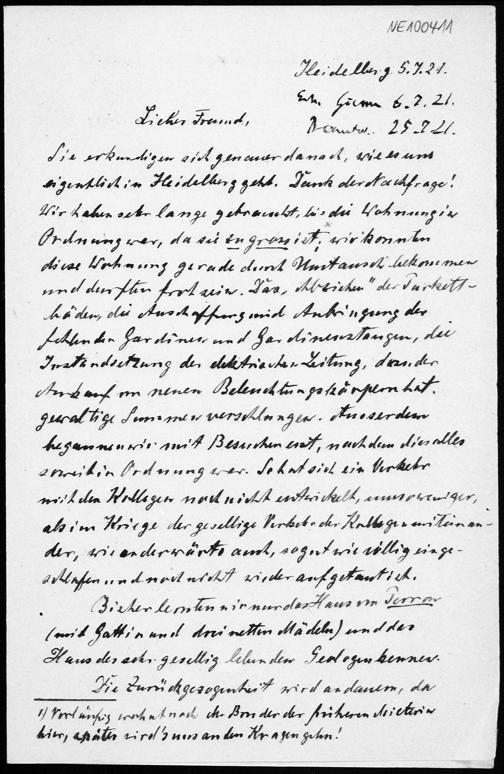 NE100411
Heidelberg 5.7.21.
6.7.21.
25.7.21.
Lieber Freund,
Sie erkundigen sich genauer danach, wie es uns
eigentlich in Heidelberg geht. Dank der Nachfrage!
Wir haben sehr lange gebraucht, bis die Wohnung in
Ordnung war, da sie zu gross ist¹; wir konnten
diese Wohnung gerade durch Umtausch bekommen
und durften froh sein. Das "Abziehen" der Parkett-
böden, die Anschaffung und Anbringung der
fehlenden Gardinen und Gardinenstangen, die
Instandsetzung der elektrischen Leitung, dazu der
Ankauf von neuen Beleuchtungskörpern hat
gewaltige Summen verschlungen. Ausserdem
begannen wir mit Besuchen erst, nachdem dies alles
soweit in Ordnung war. So hat sich ein Verkehr
mit den Kollegen noch nicht entwickelt, umsoweniger,
als im Kriege der gesellige Verkehr der Kollegen mitein an-
der, wie anderwärts auch, so gut wie völlig einge-
schlafen und noch nicht wieder aufgetaut ist.
Bisher lernten wir nur das Haus von
(mit Gattin und drei netten Mädeln) und das
Haus des sehr gesellig lebenden Geologen kennen.
Die Zurückgezogenheit wird andauern, da
1) Vorläufig wohnt noch der Bruder der früheren Mieterin
hier, später wird's uns an den Kragen gehn!